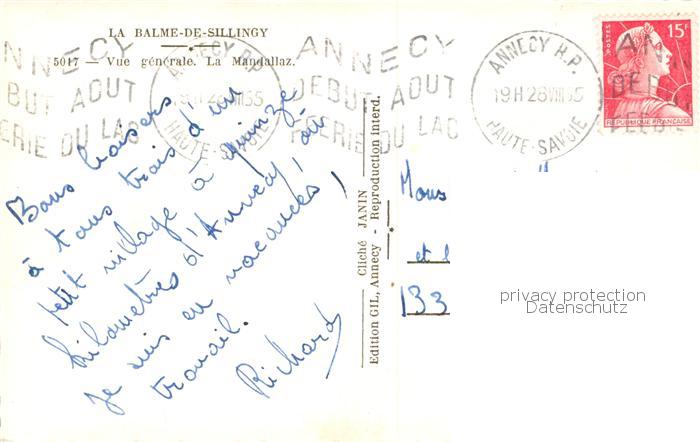 LA BALME-DE-SILLINGY
5017 — Vue générale. La Mandallaz.
ANNECY
DEBUT AOUT
FEERIE DU LAC
ANNECY R.P.
HAUTE-SAVOIE
ANNECY
DEBUT AOUT
FEERIE DU LAC
ANNECY R.P.
19H 28 VIII 55
HAUTE-SAVOIE
POSTES
15F
REPUBLIQUE FRANÇAISE
Bons baisers
à tous trois d'un
petit village à quinze
kilomètres d'Annecy, où
je suis en vacances!
travail.
Richard
Edition GIL, Annecy - Reproduction interd.
Cliché JANIN
Mons
et
133
privacy protection
Datenschutz